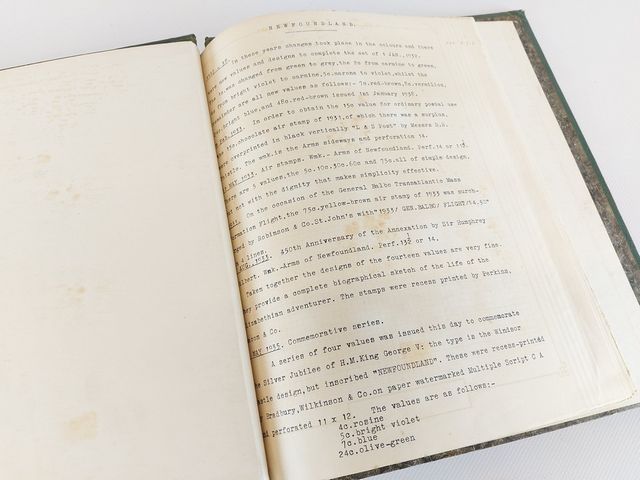 NEWFOUNDLAND.
In these years changes took place in the colours and there
new values and designs to complete the set of 1 JAN., 1932.
was changed from green to grey, the 2c from carmine to green,
from bright violet to carmine, 5c. marone to violet, whilst the
are all new values as follows:- 7c. red-brown, 8c. vermilion,
bright blue, and 48c. red-brown issued 1st January 1938.
1933. In order to obtain the 15c value for ordinary postal use
15c. chocolate air stamp of 1931, of which there was a surplus,
overprinted in black vertically "L & S Post" by Messrs D.R.
The wmk. is the Arms sideways and perforation 14.
MAY, 1933. Air stamps. Wmk.- Arms of Newfoundland. Perf. 14 or 11½.
are 5 values, the 5c. 10c. 30c. 60c and 75c. all of simple design,
but with the dignity that makes simplicity effective.
On the occasion of the General Balbo Transatlantic Mass
Flight, the 75c. yellow-brown air stamp of 1933 was surch-
by Robinson & Co. St. John's with "1933/ GEN. BALBO/ FLIGHT/ $4.50"
4 lines.
1933. 350th Anniversary of the Annexation by Sir Humphrey
Wmk.- Arms of Newfoundland. Perf. 13½ or 14.
Taken together the designs of the fourteen values are very fine.
provide a complete biographical sketch of the life of the
adventurer. The stamps were recess printed by Perkins,
& Co.
MAY 1935. Commemorative series.
A series of four values was issued this day to commemorate
Silver Jubilee of H.M. King George V: the type is the Windsor
design, but inscribed "NEWFOUNDLAND". These were recess-printed
Bradbury, Wilkinson & Co. on paper watermarked Multiple Script C A
perforated 11 x 12. The values are as follows:-
4c. rosine
5c. bright violet
7c. blue
24c. olive-green